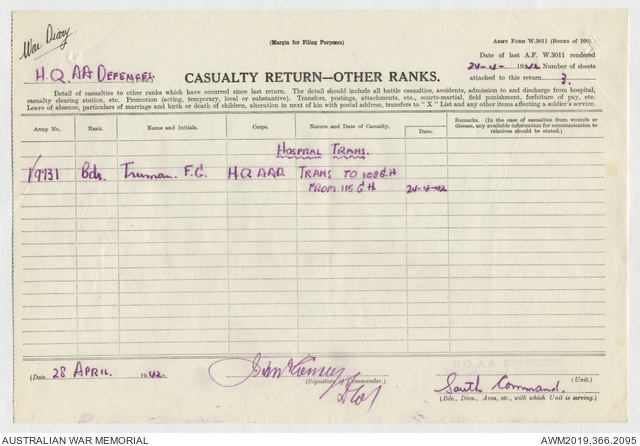 War Diary
(Margin for Filing Purposes)
ARMY FORM W.3011 (BOOKS OF 100)
Date of last A.F. W.3011 rendered
24-4- 1942 Number of sheets
attached to this return 3.
H.Q. AA DEFENCES
CASUALTY RETURN—OTHER RANKS.
Detail of casualties to other ranks which have occurred since last return. The detail should include all battle casualties, accidents, admission to and discharge from hospital,
casualty clearing station, etc. Promotion (acting, temporary, local or substantive). Transfers, postings, attachments, etc., courts-martial, field punishment, forfeiture of pay, etc.
Leave of absence, particulars of marriage and birth or death of children, alteration in next of kin with postal address, transfers to "X" List and any other items affecting a soldier's service.
Army No. Rank. Name and Initials. Corps. Nature and Date of Casualty. Date. Remarks. (In the case of casualties from wounds or
disease, any available information for communication to
relatives should be stated.)
HOSPITAL TRANS.
V9731 Bdr. Truman. F.G. H.Q A.A.D. TRANS TO 108 G.H
FROM 115 G.H 24-4-42
(Date. 28 APRIL. 1942.
(Signature of Commander.) South Command. (Unit.)
(Bde., Divn., Area, etc., with which Unit is serving.)
AUSTRALIAN WAR MEMORIAL AWM2019.366.2095